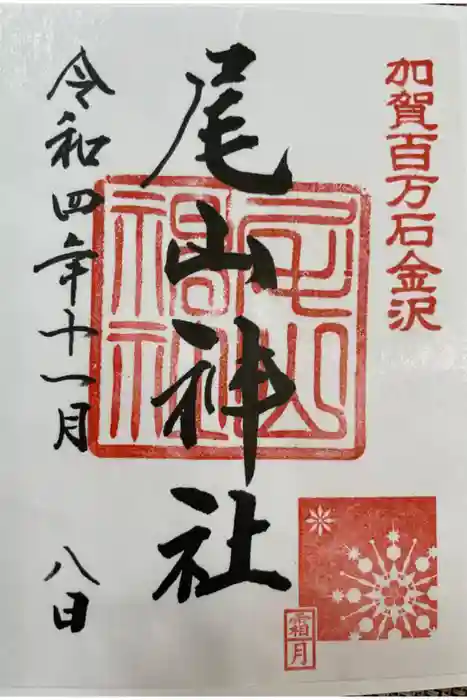 加賀百万石金沢
尾山神社
令和四年十一月八日
霜月